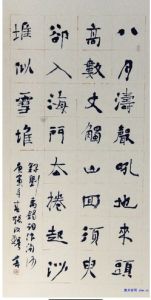 八月濤聲吼地來頭
高數丈觸山回須臾
卻入海門去捲起沙
堆似雪堆
錄劉禹錫詩